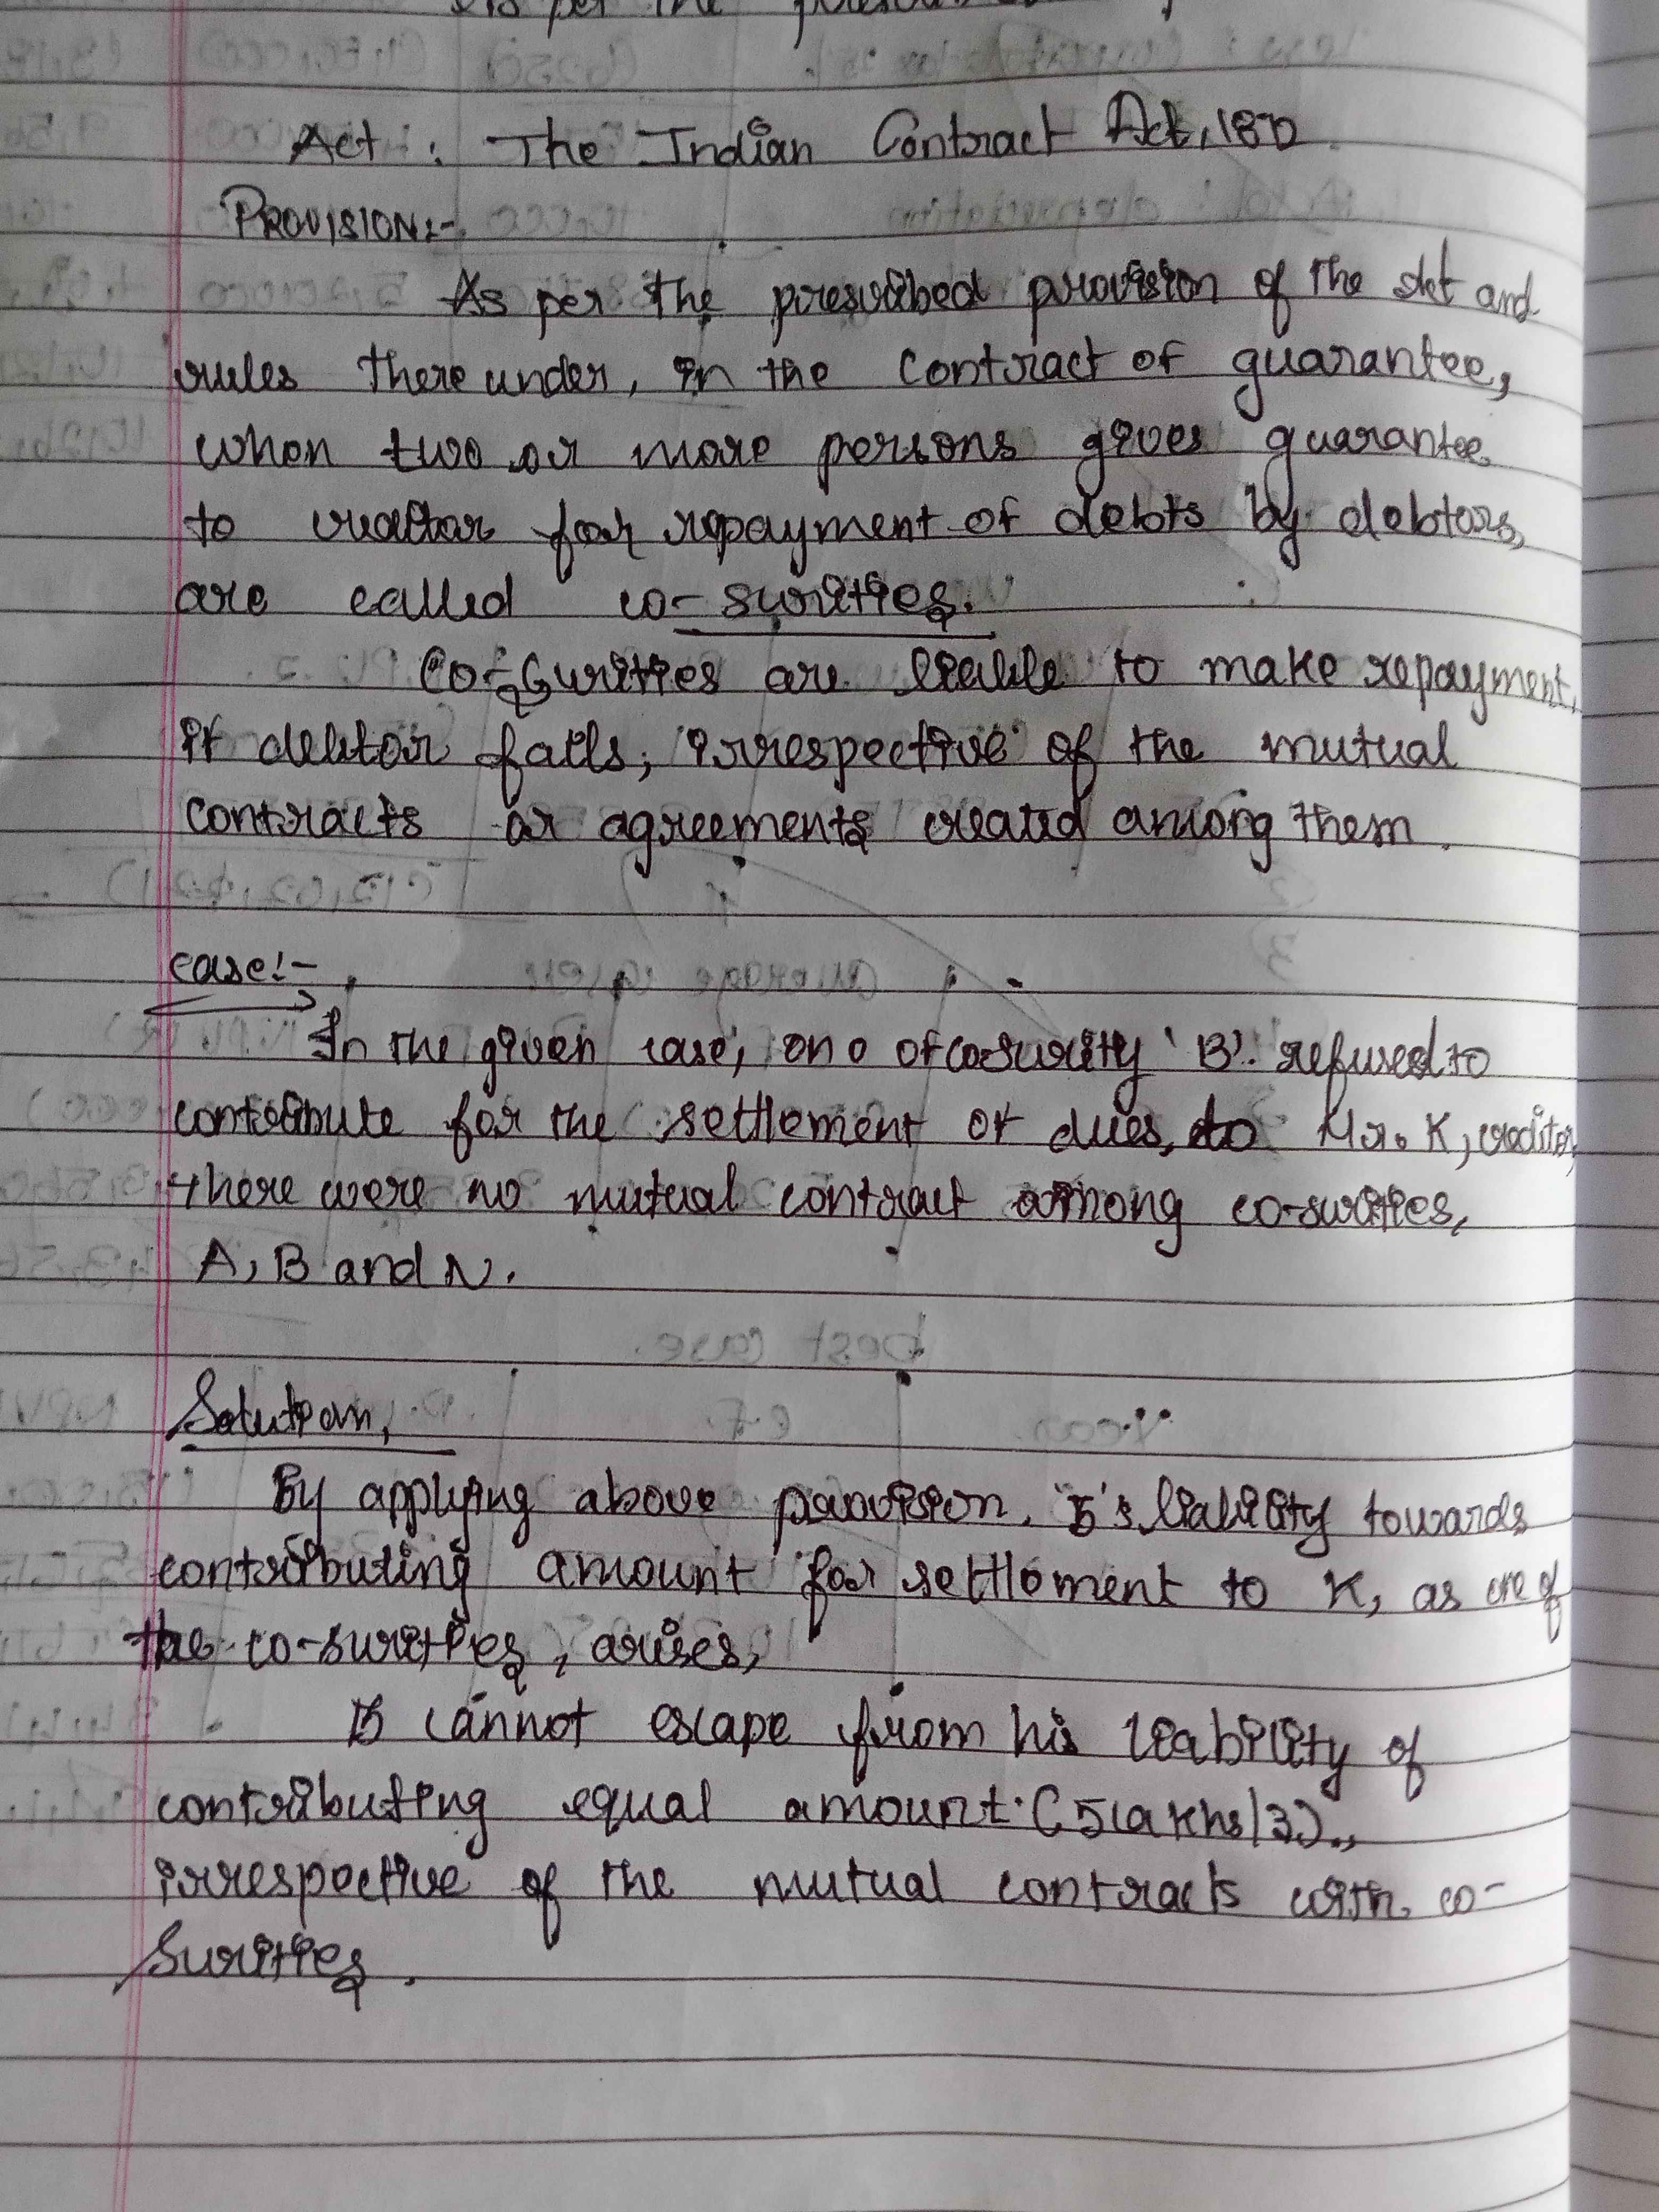 As per the
Act : The Indian Contract Act, 1872
PROVISION:-
As per the prescribed provision of the Act and
rules there under, in the contract of guarantee,
when two or more persons gives guarantee
to creditor for repayment of debts by debtors,
are called co-surities.
Co-Surities are liable to make repayment,
if debtor fails, irrespective of the mutual
contracts or agreements created among them.
case:-
In the given case, one of co-surity 'B'. refused to
contribute for the settlement of dues, to Mr. K, creditor,
there were no mutual contract among co-surities,
A, B and N.
Solution,
By applying above provision, B's liability towards
contributing amount for settlement to K, as one of
the co-surities, arises,
B cannot escape from his liability of
contributing equal amount (5 lakhs/3).,
irrespective of the mutual contracts with co-
surities.